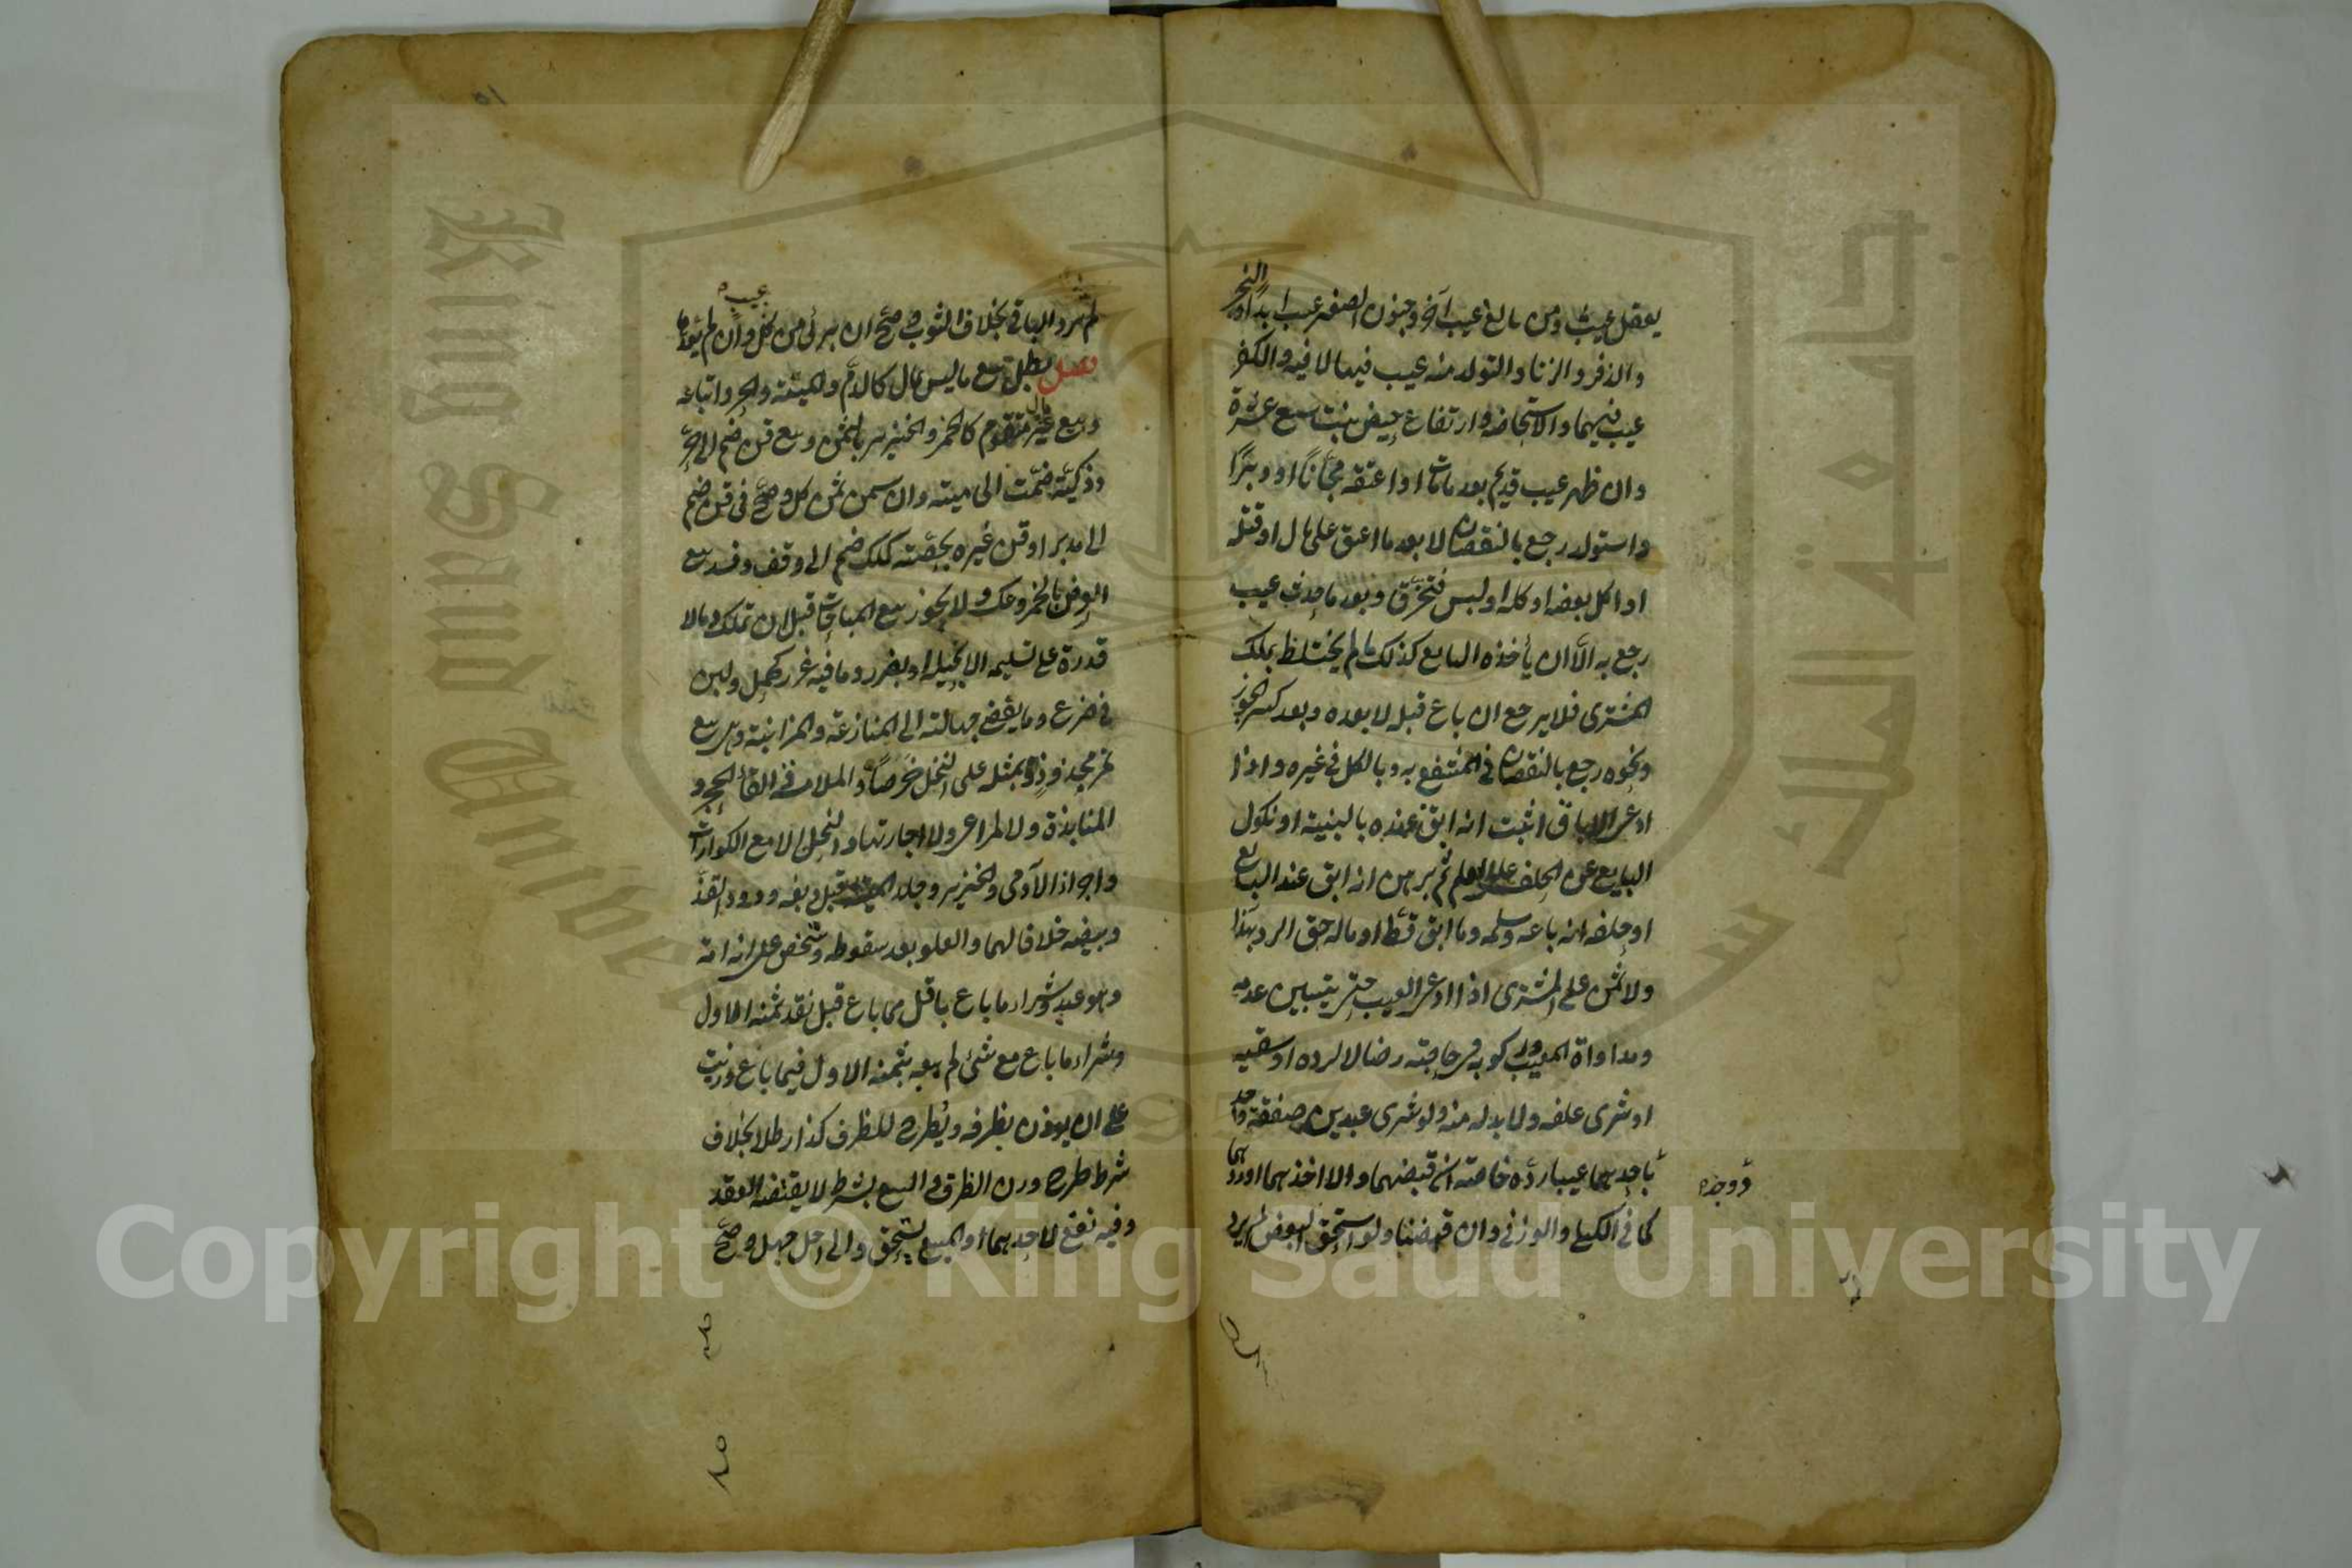 يعقل عيب ومن بالغ عيب آخر وجنون الصغير عيب ابدا والبخر
والذفر والزنا والتولد منه عيب فيها لا فيه والكفر
عيب فيهما والاستحاضه وارتفاع حيض بنت سبع عشرة
وان ظهر عيب قديم بعد مامات او اعتقه مجانا او دبر
واستولد رجع بالنقصان لا بعد ما اعتق على مال او قتله
او اكل بعضه او كله او لبس فتخرق وبعد ما حدث عيب
رجع به الا ان يأخذه البايع كذلك ما لم يختلط بملك
المشترى فلا يرجع ان باع قبله لا بعده وبعد كسر الجوز
ونحوه رجع بالنقصان في المنتفع به وبالكل في غيره واذا
ادعى الاباق اثبت انه ابق عنده بالبينة او نكول
البايع عن الحلف على العلم ثم برهن انه ابق عند البايع
او حلفه انه باعه وسلمه وما ابق قط او ماله حق الرد بهذا
ولا ثمن على المشترى اذا ادعى العيب حتى يتبين عدمه
ومداواة المعيب وركوبه في حاجته رضا لا لرده او سقيه
او شرى علفه ولا بد له منه ولو شرى عبدين صفقة واحدة
ووجد
باحدهما عيبا رده خاصة ان قبضهما والا اخذهما او ردهما
كما في الكيلي والوزني وان قبضا ولو استحق البعض لم يرد
لم يرد الباقي بخلاف الثوب وصح ان برئ من كل عيب وان لم يعدها
فصل بطل بيع ما ليس بمال كالدم والميتة والحر واتباعه
وبيع مال غير متقوم كالخمر والخنزير بالثمن وبيع قن ضم الى حر
وذكية ضمت الى ميتة وان سمى ثمن كل وصح في قن ضم
الى مدبر او قن غيره بحصته كملك ضم الى وقف وفسد بيع
العرض بالخمر وعكسه ولا يجوز بيع المباحات قبل ان تملك وما لا
قدرة على تسليمه الا بحيلة او بضرر وما فيه غرر كحمل ولبن
في ضرع وما يفضي جهالته الى المنازعة والمزابنة وهي بيع
تمر مجذوذ بمثله على النخل خرصا والملامسة والقاء الحجر و
المنابذة ولا المراعى ولا اجارتها والنحل الا مع الكوارات
واجزاء الآدمى والخنزير وجلد الميتة قبل دبغه ودود القز
وبيضه خلافا لهما والعلو بعد سقوطه وشخص على انه امة
وهو عبد وشراء ما باع باقل مما باع قبل نقد ثمنه الاول
وشراء ما باع مع شئ لم يبعه بثمنه الاول فيما باع وزيت
على ان يوزن بظرفه ويطرح للظرف كذا رطلا بخلاف
شرط طرح وزن الظرف والبيع بشرط لا يقتضيه العقد
وفيه نفع لاحدهما او المبيع يستحق والى اجل جهل وصح
Copyright © King Saud University
King Saud University
جامعة الملك سعود